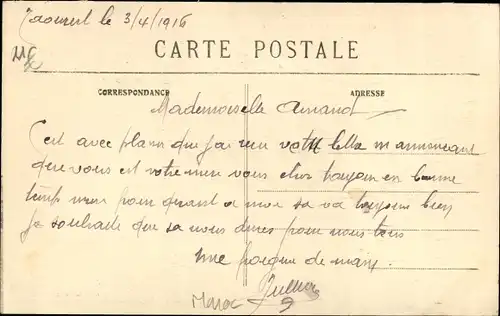 le 3/4/1916
CARTE POSTALE
CORRESPONDANCE
ADRESSE
Mademoiselle Amand
C'est avec plaisir que j'ai reu votre lettre m'annoncant
que vous est votre mere vous etes toujours en bonne
pour quant a moi sa va toujours bien
Je souhaite que sa nous dures pour nous tous
Une poigne de main
Maroc